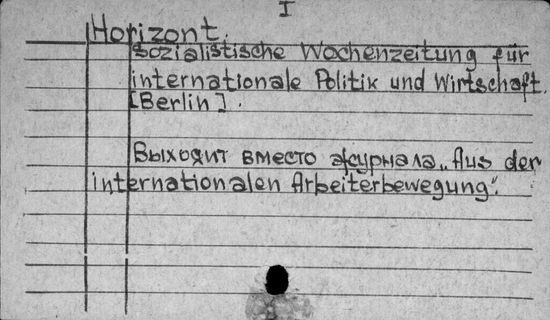 I
Horizont.
Sozialistische Wochenzeitung für
internationale Politik und Wirtschaft.
[Berlin].
Выходит вместо журнала „Aus der
internationalen Arbeiterbewegung“.